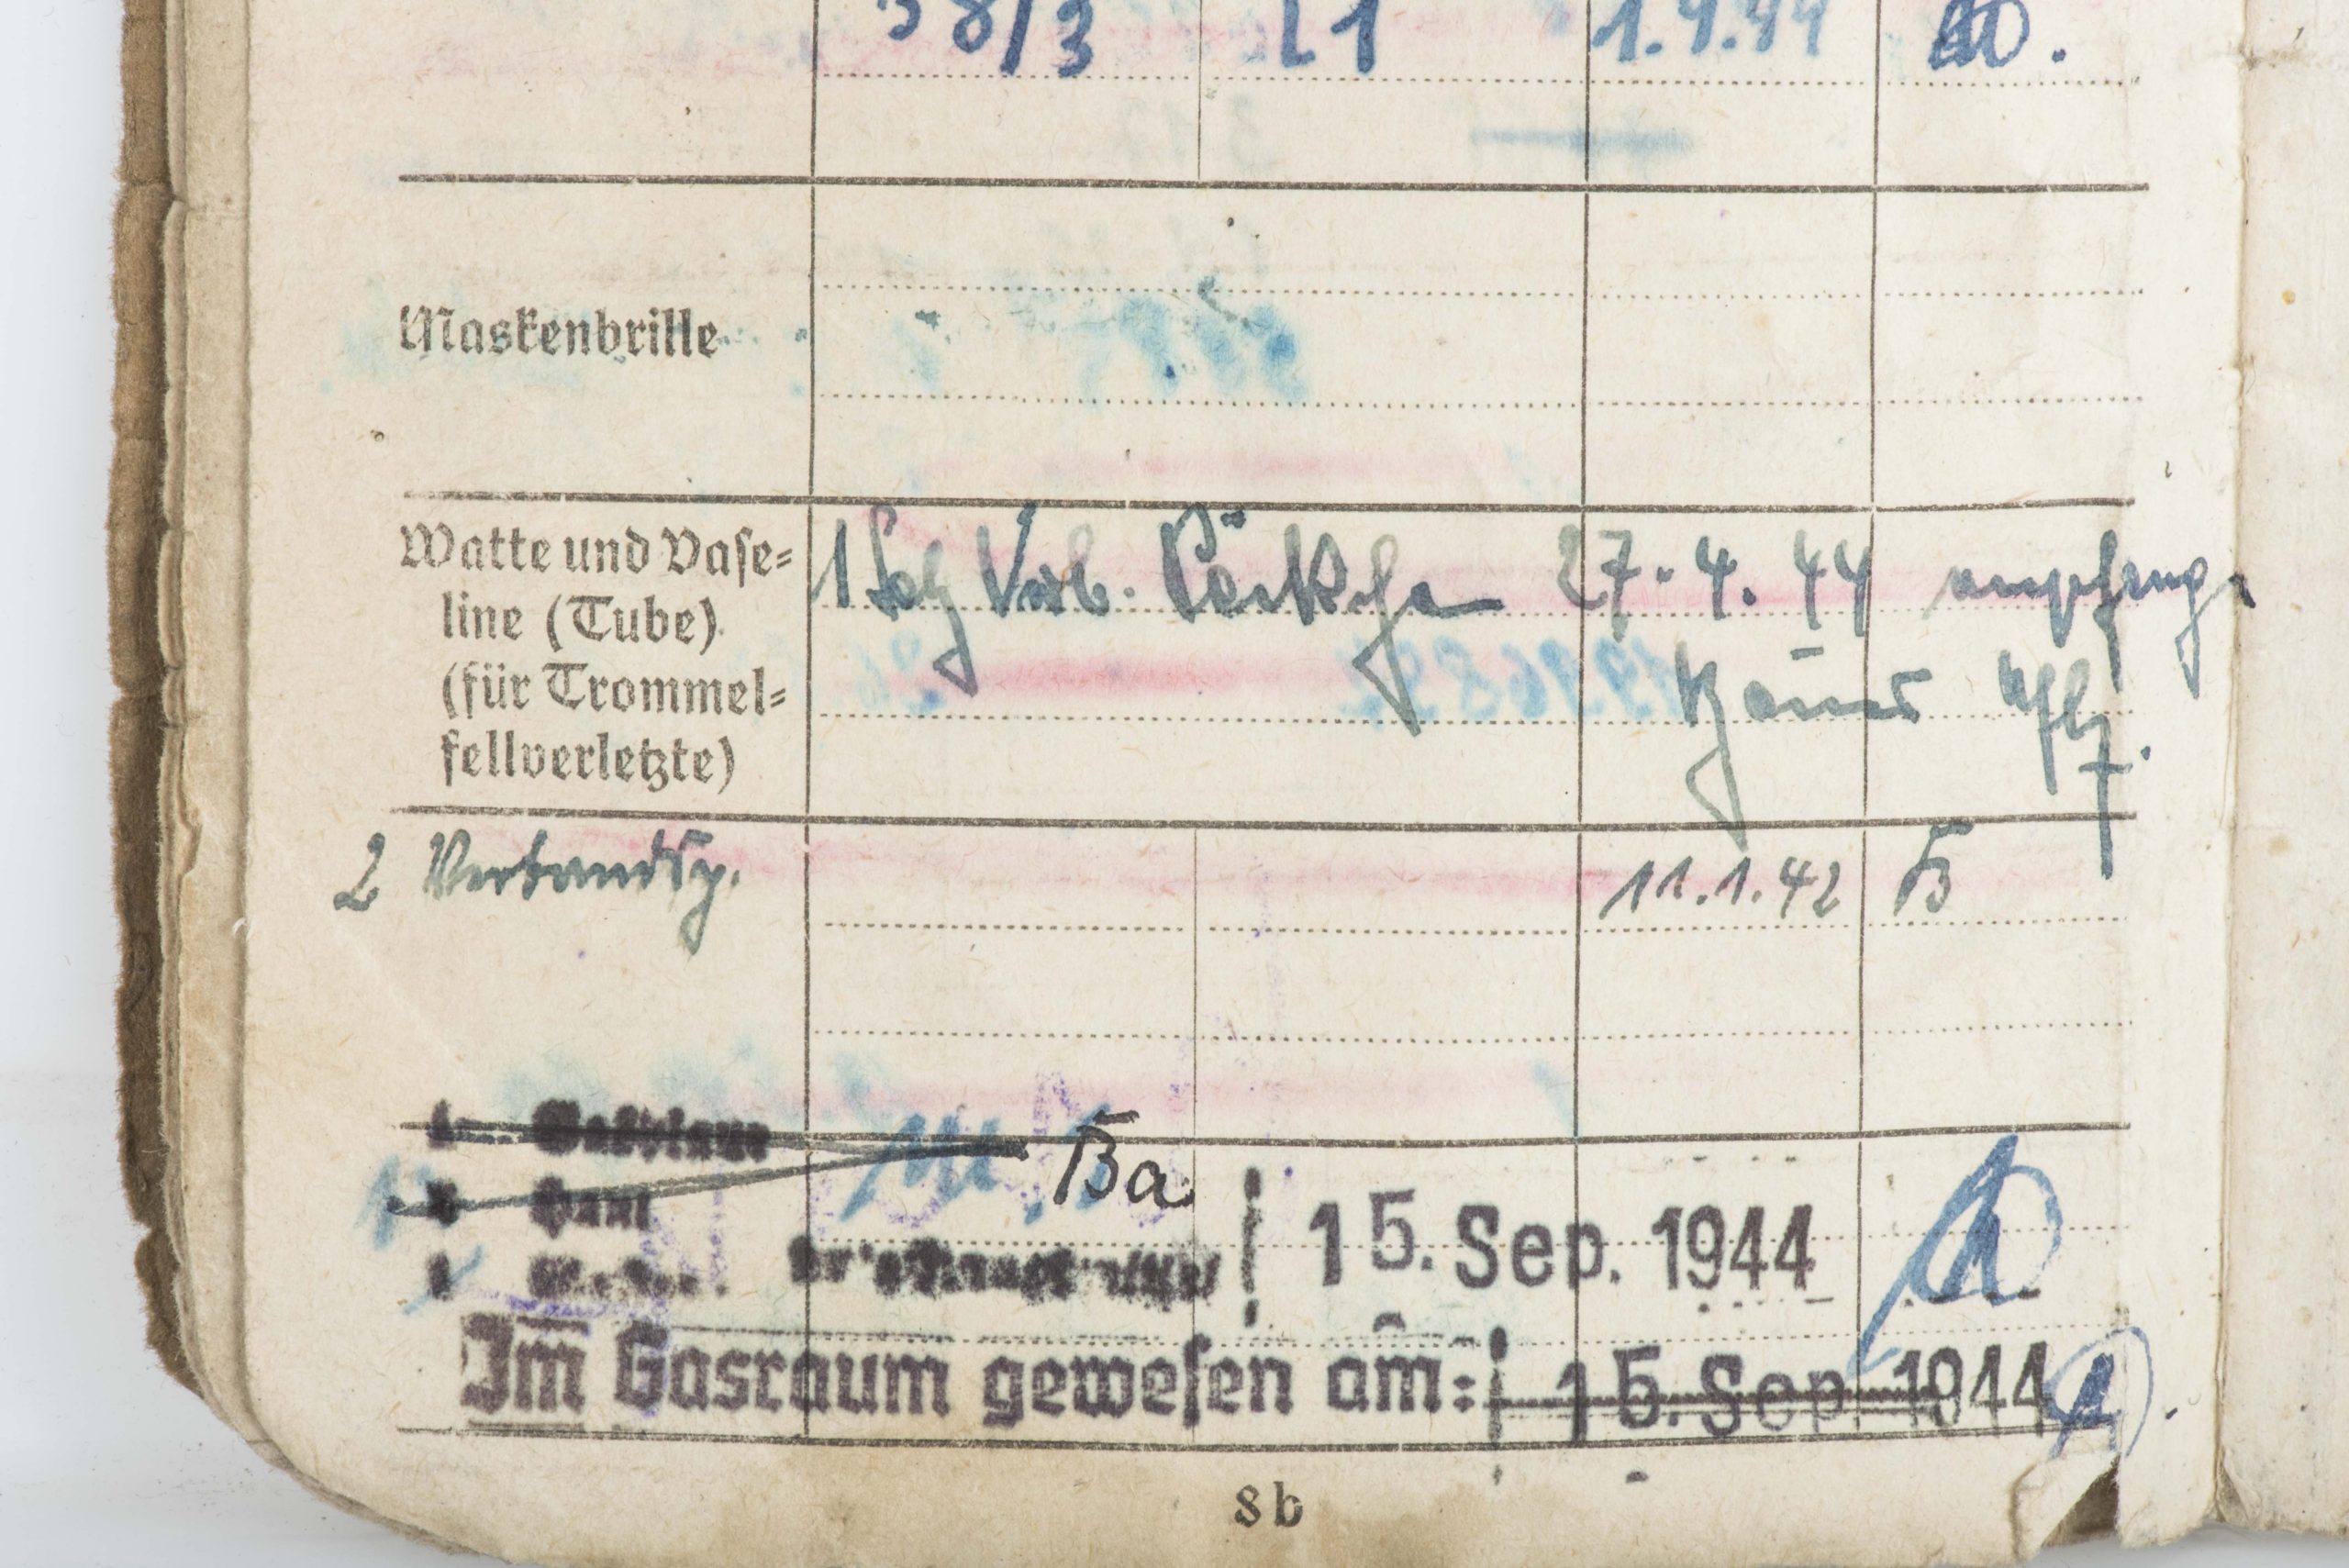 38/3 L1 1.9.44
Maskenbrille
Watte und Vase-
line (Tube)
(für Trommel-
fellverletzte)
1 Satz Verb. Päckchen 27.4.44 empfang.
Uffz.
2 Verbandsp. 11.1.42 B
Ba
15. Sep. 1944
Im Gasraum gewesen am: 15. Sep. 1944
8b